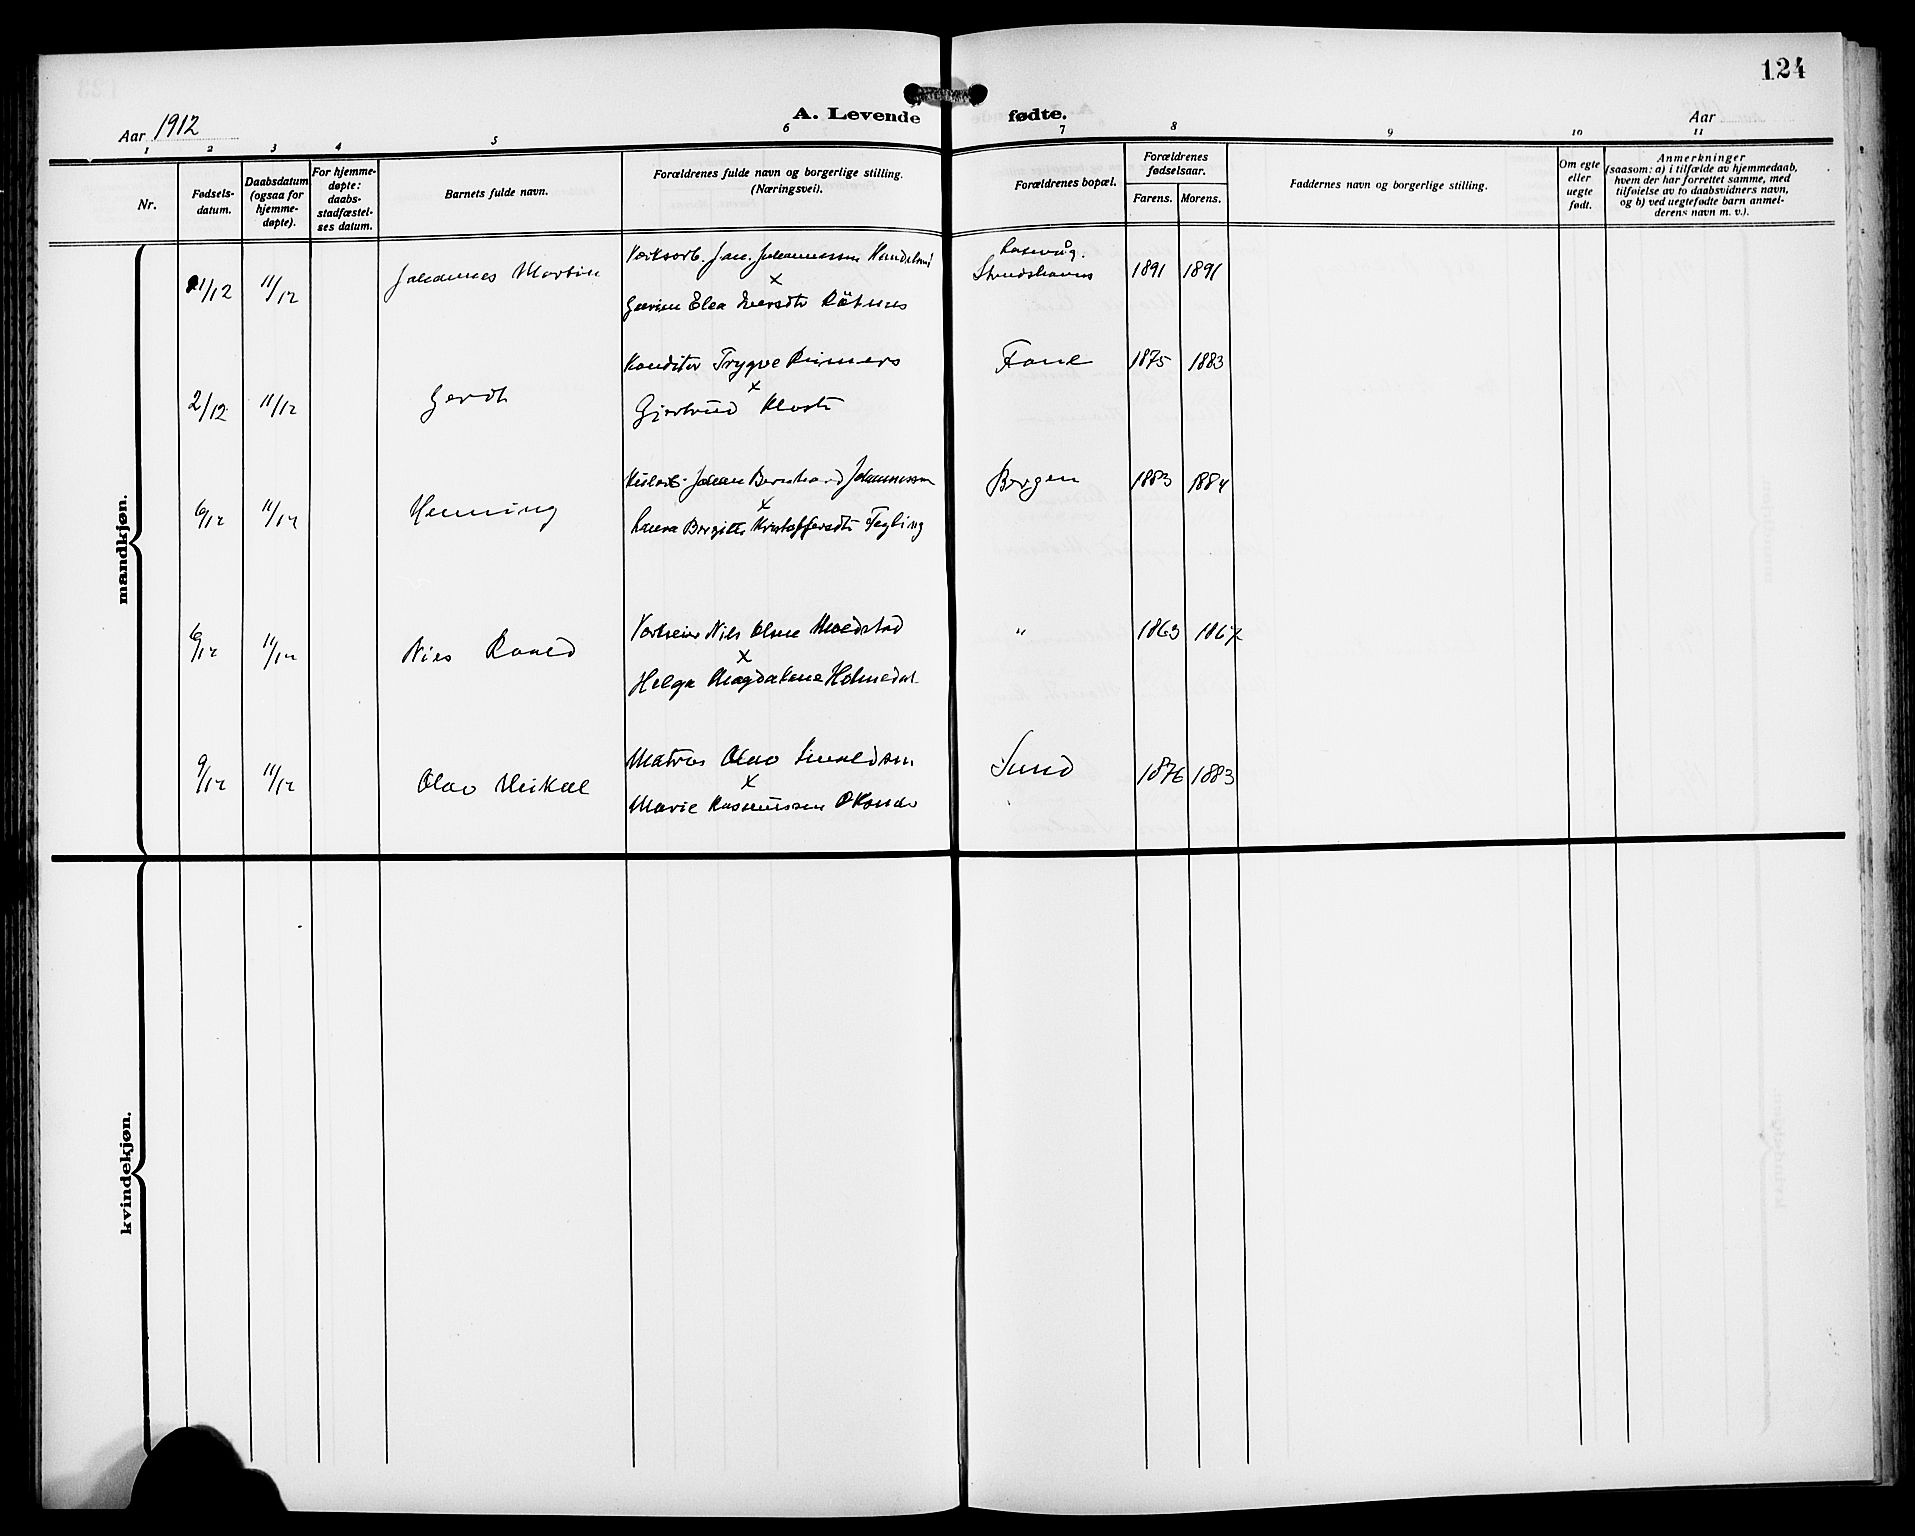 124
Aar 1912
A. Levende fødte.
Aar
1 2 3 4 5 6 7 8 9 10 11
Nr.
Fødsels-
datum.
Daabsdatum
(ogsaa for
hjemme-
døpte).
For hjemme-
døpte:
daabs-
stadfæstel-
ses datum.
Barnets fulde navn.
Forældrenes fulde navn og borgerlige stilling.
(Næringsvei).
Forældrenes bopæl.
Forældrenes
fødselsaar.
Farens. Morens.
Faddernes navn og borgerlige stilling.
Om egte
eller
uegte
født.
Anmerkninger
(saasom: a) i tilfælde av hjemmedaab,
hvem der har forrettet samme, med
tilføielse av to daabsvidners navn,
og b) ved uegtefødte barn anmel-
derens navn m. v.).
mandkjøn.
Johannes Martin
1/12 11/12
x
Laksevåg.
1891 1891
Konditor Trygve Reimers
2/12 11/12 Gerdt
x
Gjertrud
Fane 1875 1883
Johan Bernhard Johannessen
6/12 11/12 Henning
x
Laura Birgitte Kristoffersdtr Tegling
Bergen 1883 1884
Nils Olsen
6/12 11/12 Nils
x
Helga Magdalene Holmedal
" 1863 1867
Matros Olav
9/12 11/12 Olav Mikal
x
Marie Rasmussen
Sund 1876 1883
kvindekjøn.